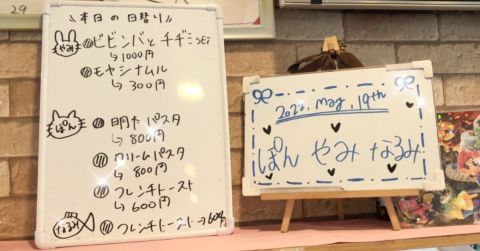 29
本日の日替り
やみ ビビンバとチヂミSET
↳ 1000円
モヤシナムル
↳ 300円
ぱん 明太パスタ
↳ 800円
クリームパスタ
↳ 800円
フレンチトースト
↳ 600円
なるみ フレンチトースト→600円
2022. may. 19th
ぱん やみ なるみ